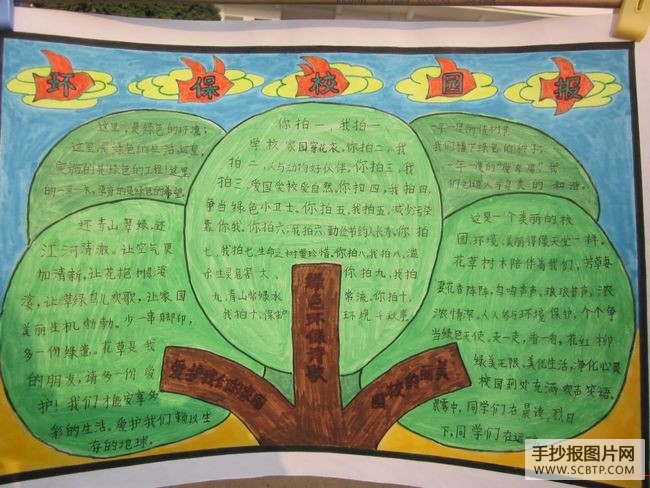 环 保 校 园 报
这里,是绿色的环境;
这里,是绿色的生活;这里,
实施的是绿色的工程!这里
的一草一木,孕育的是绿色的希望。
你拍一,我拍一,
学校家园穿花衣。你拍二,我
拍二,人与动物好伙伴。你拍三,我
拍三,爱国爱校爱自然。你拍四,我拍四,
争当绿色小卫士。你拍五,我拍五,减少污染
靠你我。你拍六,我拍六,勤俭节约人长寿。你拍
七,我拍七,生命之树要珍惜。你拍八,我拍八,
你拍九,我拍
九,青山常绿水常流。你拍十,
我拍十,保护环境
一年一度的植树节
我们播下绿色的种子;
一年一度的“爱鸟周”我
们创造人与自然的和谐。
还青山翠绿,还
江河清澈。让空气更
加清新,让花艳树影滚
滚,让草绿鸟儿欢歌,让家国
美丽生机勃勃。少一串脚印,
多一份绿意。花草是我
的朋友,请多一份爱
护!我们才能享多
彩的生活。爱护我们赖以生
存的地球。
这是一个美丽的校
园,环境美丽得像天堂一样。
花草树木陪伴着我们,芳草萋
萋花香阵阵,鸟鸣声声。琅琅书声,浓
浓情深。人人参与环境保护,个个争
当绿色天使。走一走,看一看,花红柳
绿美无限。美化生活,净化心灵
校园到处充满欢声笑语。
晨雾中,同学们在晨读,烈日
下,同学们在
绿色环保诗歌
爱护我们的家园
园校的明美
手抄报图片网
WWW.SCBTP.COM